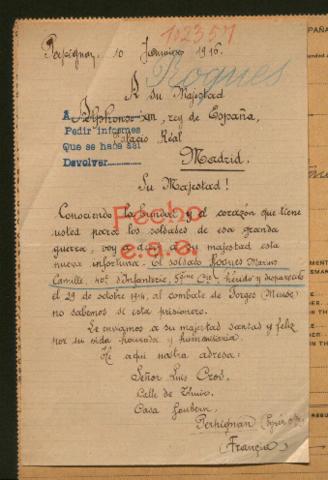 102357
Perpignan, 10 Janvier 1916.
Roques
A su Majestad
Alphonse XIII, rey de España,
Palacio Réal
Madrid.
A
Pedir informes
Que se hace así
Devolver
Su Majestad!
Conociendo la bundad y el corazón que tiene
usted para los soldados de esa granda
guerra, voy a dar a su majestad esta
nueva infortuna. El soldado Roques Marius
Camille, 40º d'Infanterie, 5ème Cie, hérido y disparecido
el 29 de octobre 1914, al combate de Forges (Meuse)
no sabemos si esta prisonero.
Fecho
e.a.e.
Le enviamos a su majestad santad y feliz
por su vida hourada y humanitaria.
He aqui nostra adresa:
Señor Luis Cros.
Calle de Thuir.
Casa Joubern
Perpignan
(Francia)